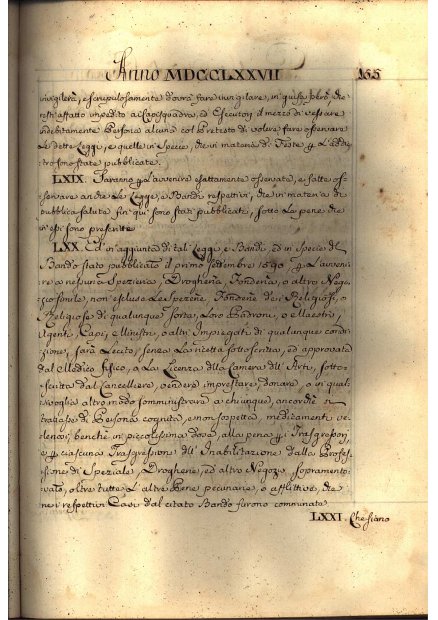 Anno MDCCLXXVII 165
invigilerà, e scrupulosamente dovrà fare invigilare, in guisa però, che
resti affatto impedito a Capisquadra, ed Esecutori il mezzo di vessare
indebitamente Persona alcuna col Pretesto di volere fare osservare
le dette Leggi, e quelle in Specie, che in materia di Feste
sono state pubblicate.
LXIX. Faranno l'avvenire esattamente osservare, e fatte os-
servare anche le Leggi, e Bandi respettivi, che in materia di
pubblica salute fin qui sono stati pubblicati, sotto le pene che
in essi sono prescritte
LXX. Ed in aggiunta di tali Leggi, e Bandi, ed in Specie del
Bando stato pubblicato il primo Settembre l'avvenire
a nessuna Spezieria, Drogheria, Fonderia, o altro Nego-
zio simile, non escluso le Spezerie, Fonderie de i Religiosi, o
Religiose di qualunque sorta, loro Padroni, o Maestri,
Agenti, Capi, e Ministri, o altri Impiegati di qualunque condi-
zione, sarà lecito, senza la ricetta sottoscritta, ed approvata
dal Medico fisico, o la Licenza della Camera dell' Arti, sotto-
scritta dal Cancelliere, vendere imprestare, donare, o in qual-
sivoglia altro modo somministrare a chiunque, ancorchè si
trattasse di Persona cognita, e non sospetta, medicamenti ve-
lenosi, benchè in piccolissima dose, alla pena Trasgressori,
e ciascuna Trasgressione dell' Inabilitazione dalla Profes-
sione di Speziale, Droghiere, ed altro Negozio, sopramento-
vato, oltre tutte l'altre Pene pecuniarie, o afflittive, che
nei respettivi Casi dal citato Bando furono comminate
LXXI. Che siano